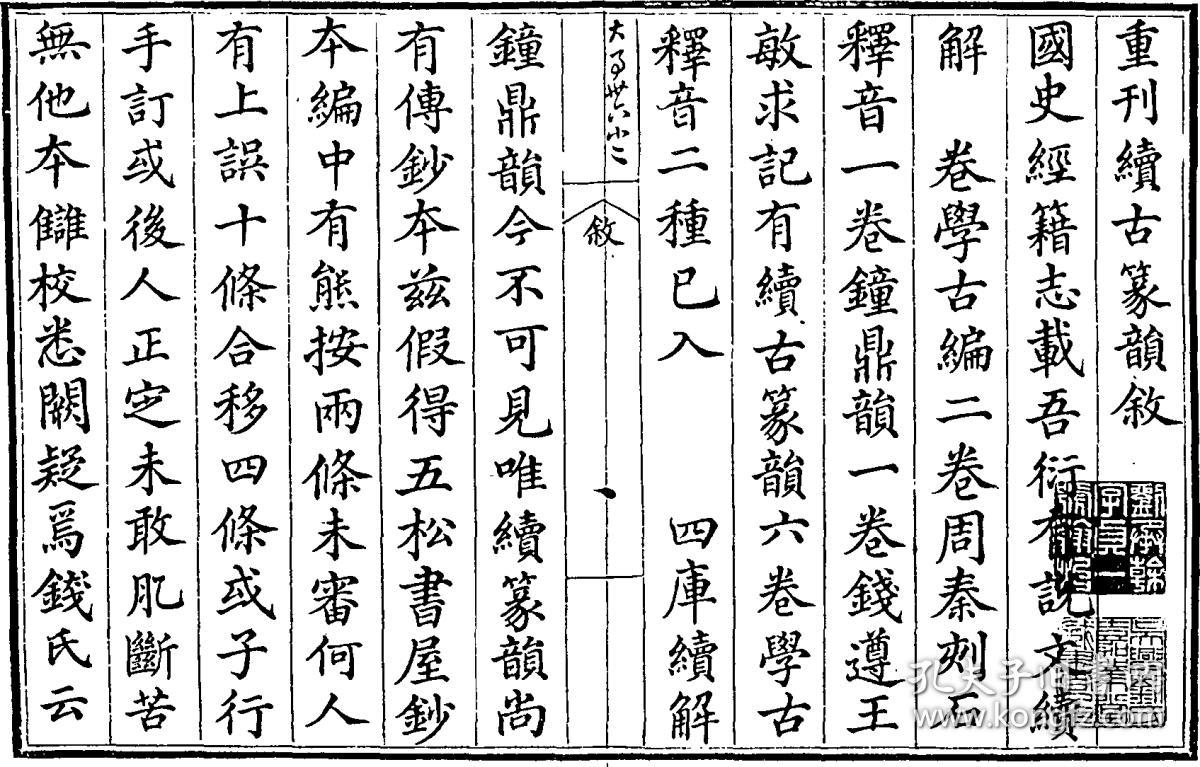 重刊續古篆韻敘
國史經籍志載吾衍有說文續
解　卷學古編二卷周秦刻石
釋音一卷鐘鼎韻一卷錢遵王
敏求記有續古篆韻六卷學古
釋音二種已入　四庫續解
大 卅六小二
敘
鐘鼎韻今不可見唯續篆韻尚
有傳鈔本茲假得五松書屋鈔
本編中有熊按兩條未審何人
有上誤十條合移四條或子行
手訂或後人正定未敢肊斷苦
無他本讎校悉闕疑焉錢氏云
劉承幹
字貞一
號翰怡
孔夫子旧书网
www.kongfz.com